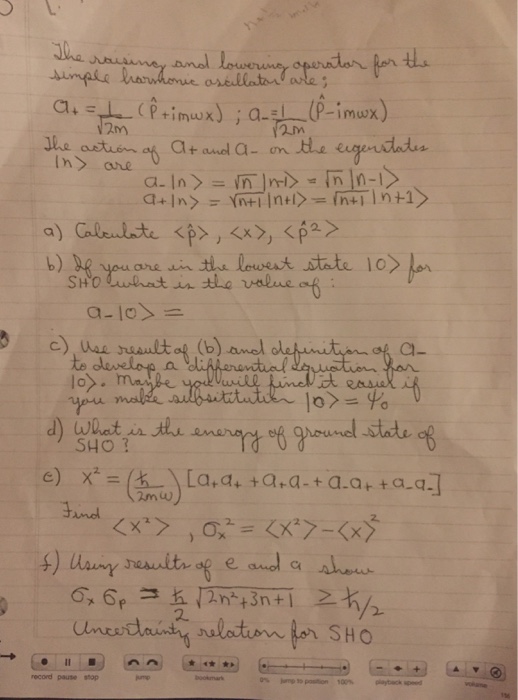 The raising and lowering operator for the
simple harmonic oscillator are;
a₊ = 1/√2m (P̂ + imωx) ; a₋ = 1/√2m (P̂ - imωx)
The action of a+ and a- on the eigenstates
|n> are
a₋|n> = √n |n-1> = √n |n-1>
a₊|n> = √n+1 |n+1> = √n+1 |n+1>
a) Calculate <p̂>, <x>, <p̂²>
b) If you are in the lowest state |0> for
SHO what is the value of :
a₋|0> =
c) Use result of (b) and definition of a-
to develop a differential equation for
|0>. Maybe you will find it easier if
you make substitution |0> = ψ₀
d) What is the energy of ground state of
SHO ?
e) x² = (ħ/2mω) [a₊a₊ + a₊a₋ + a₋a₊ + a₋a₋]
Find
<x²> , σₓ² = <x²> - <x>²
f) Using results of e and a show
σₓ σₚ = ħ/2 √2n²+3n+1 ≥ ħ/2
Uncertainty relation for SHO
record pause stop jump bookmark 0% jump to position 100% playback speed volume